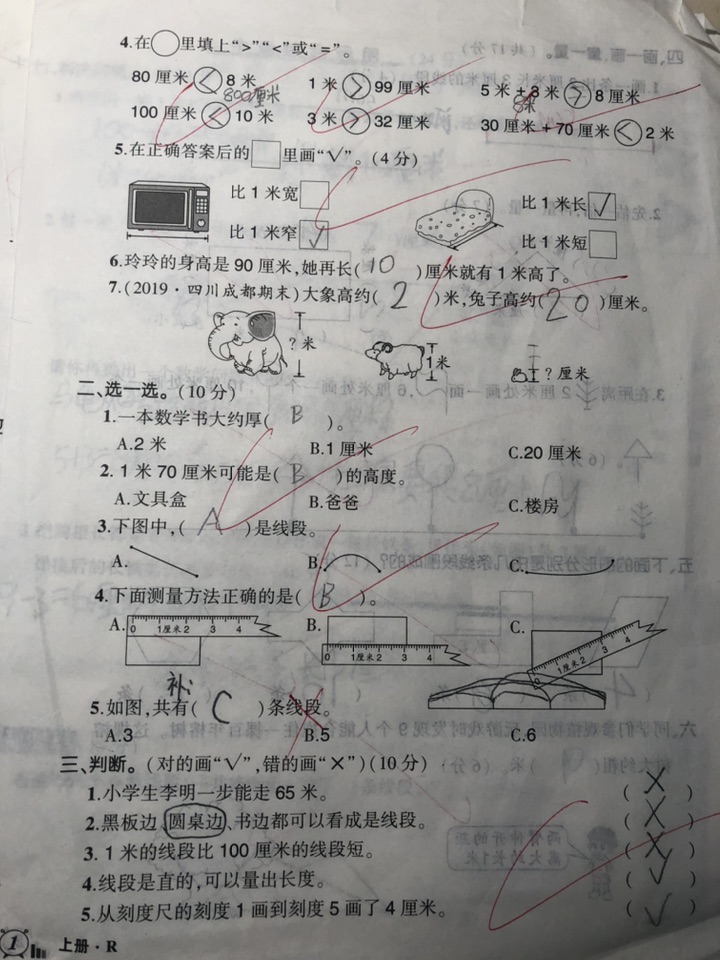 4.在○里填上“>”“<”或“=”。
80 厘米 < 8 米 1 米 > 99 厘米 5 米 + 3 米 > 8 厘米
800厘米 8米
100 厘米 < 10 米 3 米 > 32 厘米 30 厘米 + 70 厘米 < 2 米
5.在正确答案后的□里画“√”。(4 分)
比 1 米宽□ 比 1 米长 √
比 1 米窄 √ 比 1 米短□
6.玲玲的身高是 90 厘米,她再长( 10 )厘米就有 1 米高了。
7.(2019·四川成都期末)大象高约( 2 )米,兔子高约( 20 )厘米。
? 米 1 米 ? 厘米
二、选一选。(10 分)
1.一本数学书大约厚( B )。
A.2 米 B.1 厘米 C.20 厘米
2. 1 米 70 厘米可能是( B )的高度。
A.文具盒 B.爸爸 C.楼房
3.下图中,( A )是线段。
A. B. C.
4.下面测量方法正确的是( B )。
A. B. C.
0 1厘米2 3 4 0 1厘米2 3 4 0 1厘米2 3 4
补
5.如图,共有( C )条线段。
A.3 B.5 C.6
三、判断。(对的画“√”,错的画“×”)(10 分)
1.小学生李明一步能走 65 米。 ( × )
2.黑板边、圆桌边、书边都可以看成是线段。 ( × )
3. 1 米的线段比 100 厘米的线段短。 ( × )
4.线段是直的,可以量出长度。 ( √ )
5.从刻度尺的刻度 1 画到刻度 5 画了 4 厘米。 ( √ )
1 上册·R